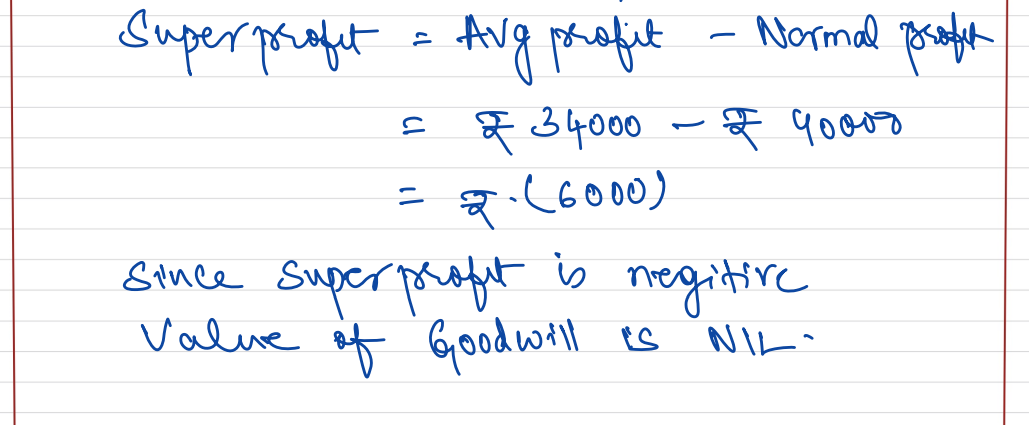 Superprofit = Avg profit - Normal profit
= ₹ 34000 - ₹ 40000
= ₹.(6000)
Since superprofit is negitive
Value of Goodwill is NIL.